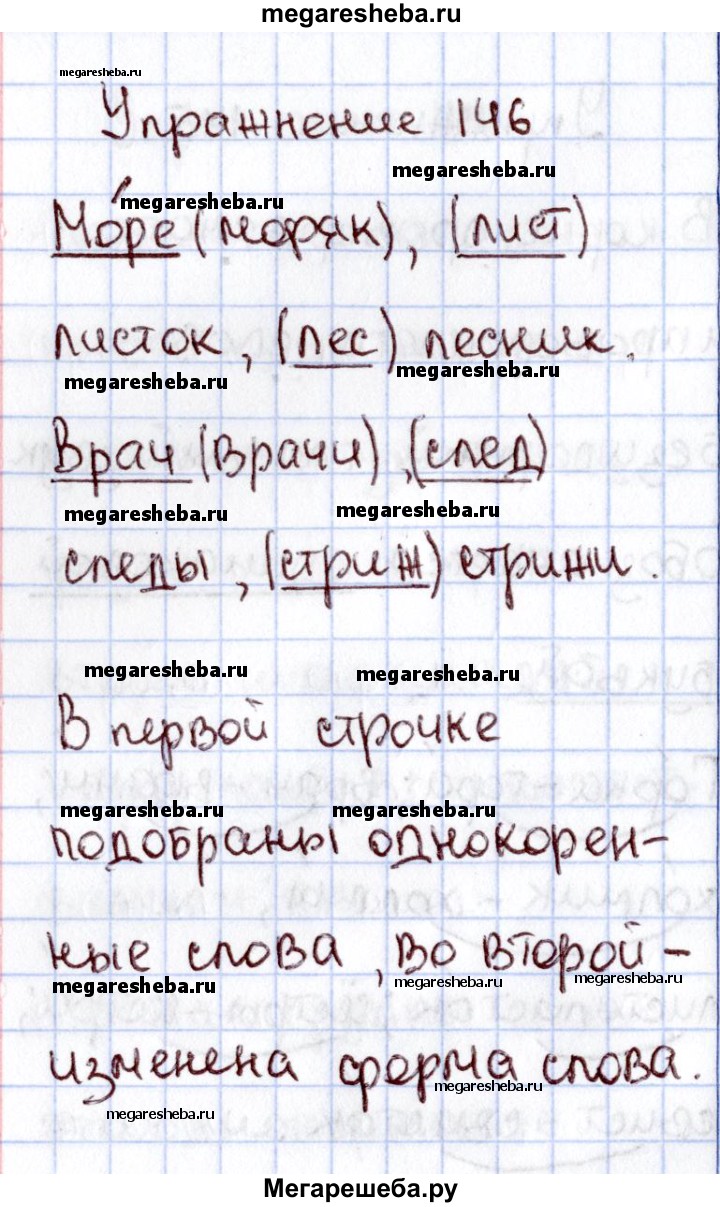 megaresheba.ru
megaresheba.ru
Упражнение 146
megaresheba.ru
megaresheba.ru
Мо́ре (моряк), (лист)
листок, (лес) лесник.
megaresheba.ru megaresheba.ru
Врач (врачи), (след)
megaresheba.ru megaresheba.ru
следы, (стриж) стрижи.
megaresheba.ru megaresheba.ru
В первой строчке
megaresheba.ru megaresheba.ru
подобраны однокорен-
ные слова, во второй -
megaresheba.ru megaresheba.ru
изменена форма слова.
megaresheba.ru megaresheba.ru
Мегарешеба.ру